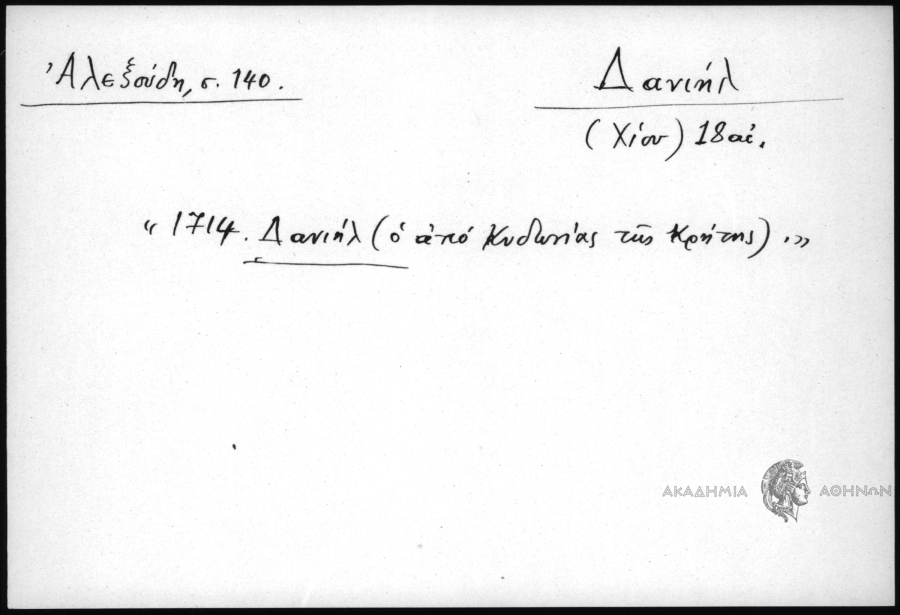 Ἀλεξούδη, σ. 140.
Δανιήλ
(Χίου) 18 αἰ.
« 1714. Δανιήλ (ὁ ἀπό Κυδωνίας τῆς Κρήτης) .»
ΑΚΑΔΗΜΙΑ ΑΘΗΝΩΝ